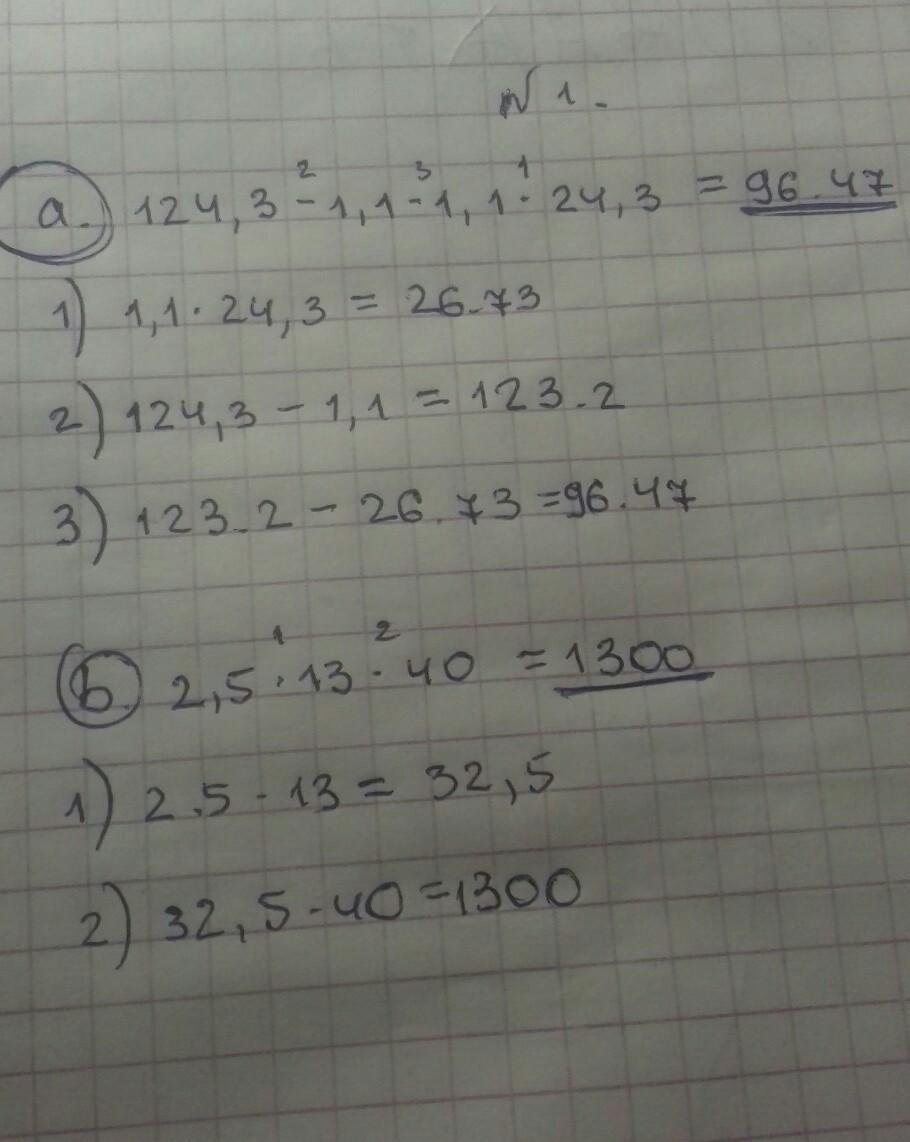 № 1.
а. 124,3 -² 1,1 -³ 1,1 ·¹ 24,3 = 96.47
1) 1,1 · 24,3 = 26.73
2) 124,3 - 1,1 = 123.2
3) 123.2 - 26.73 = 96.47
б. 2,5 ·¹ 13 ·² 40 = 1300
1) 2.5 · 13 = 32,5
2) 32,5 · 40 = 1300